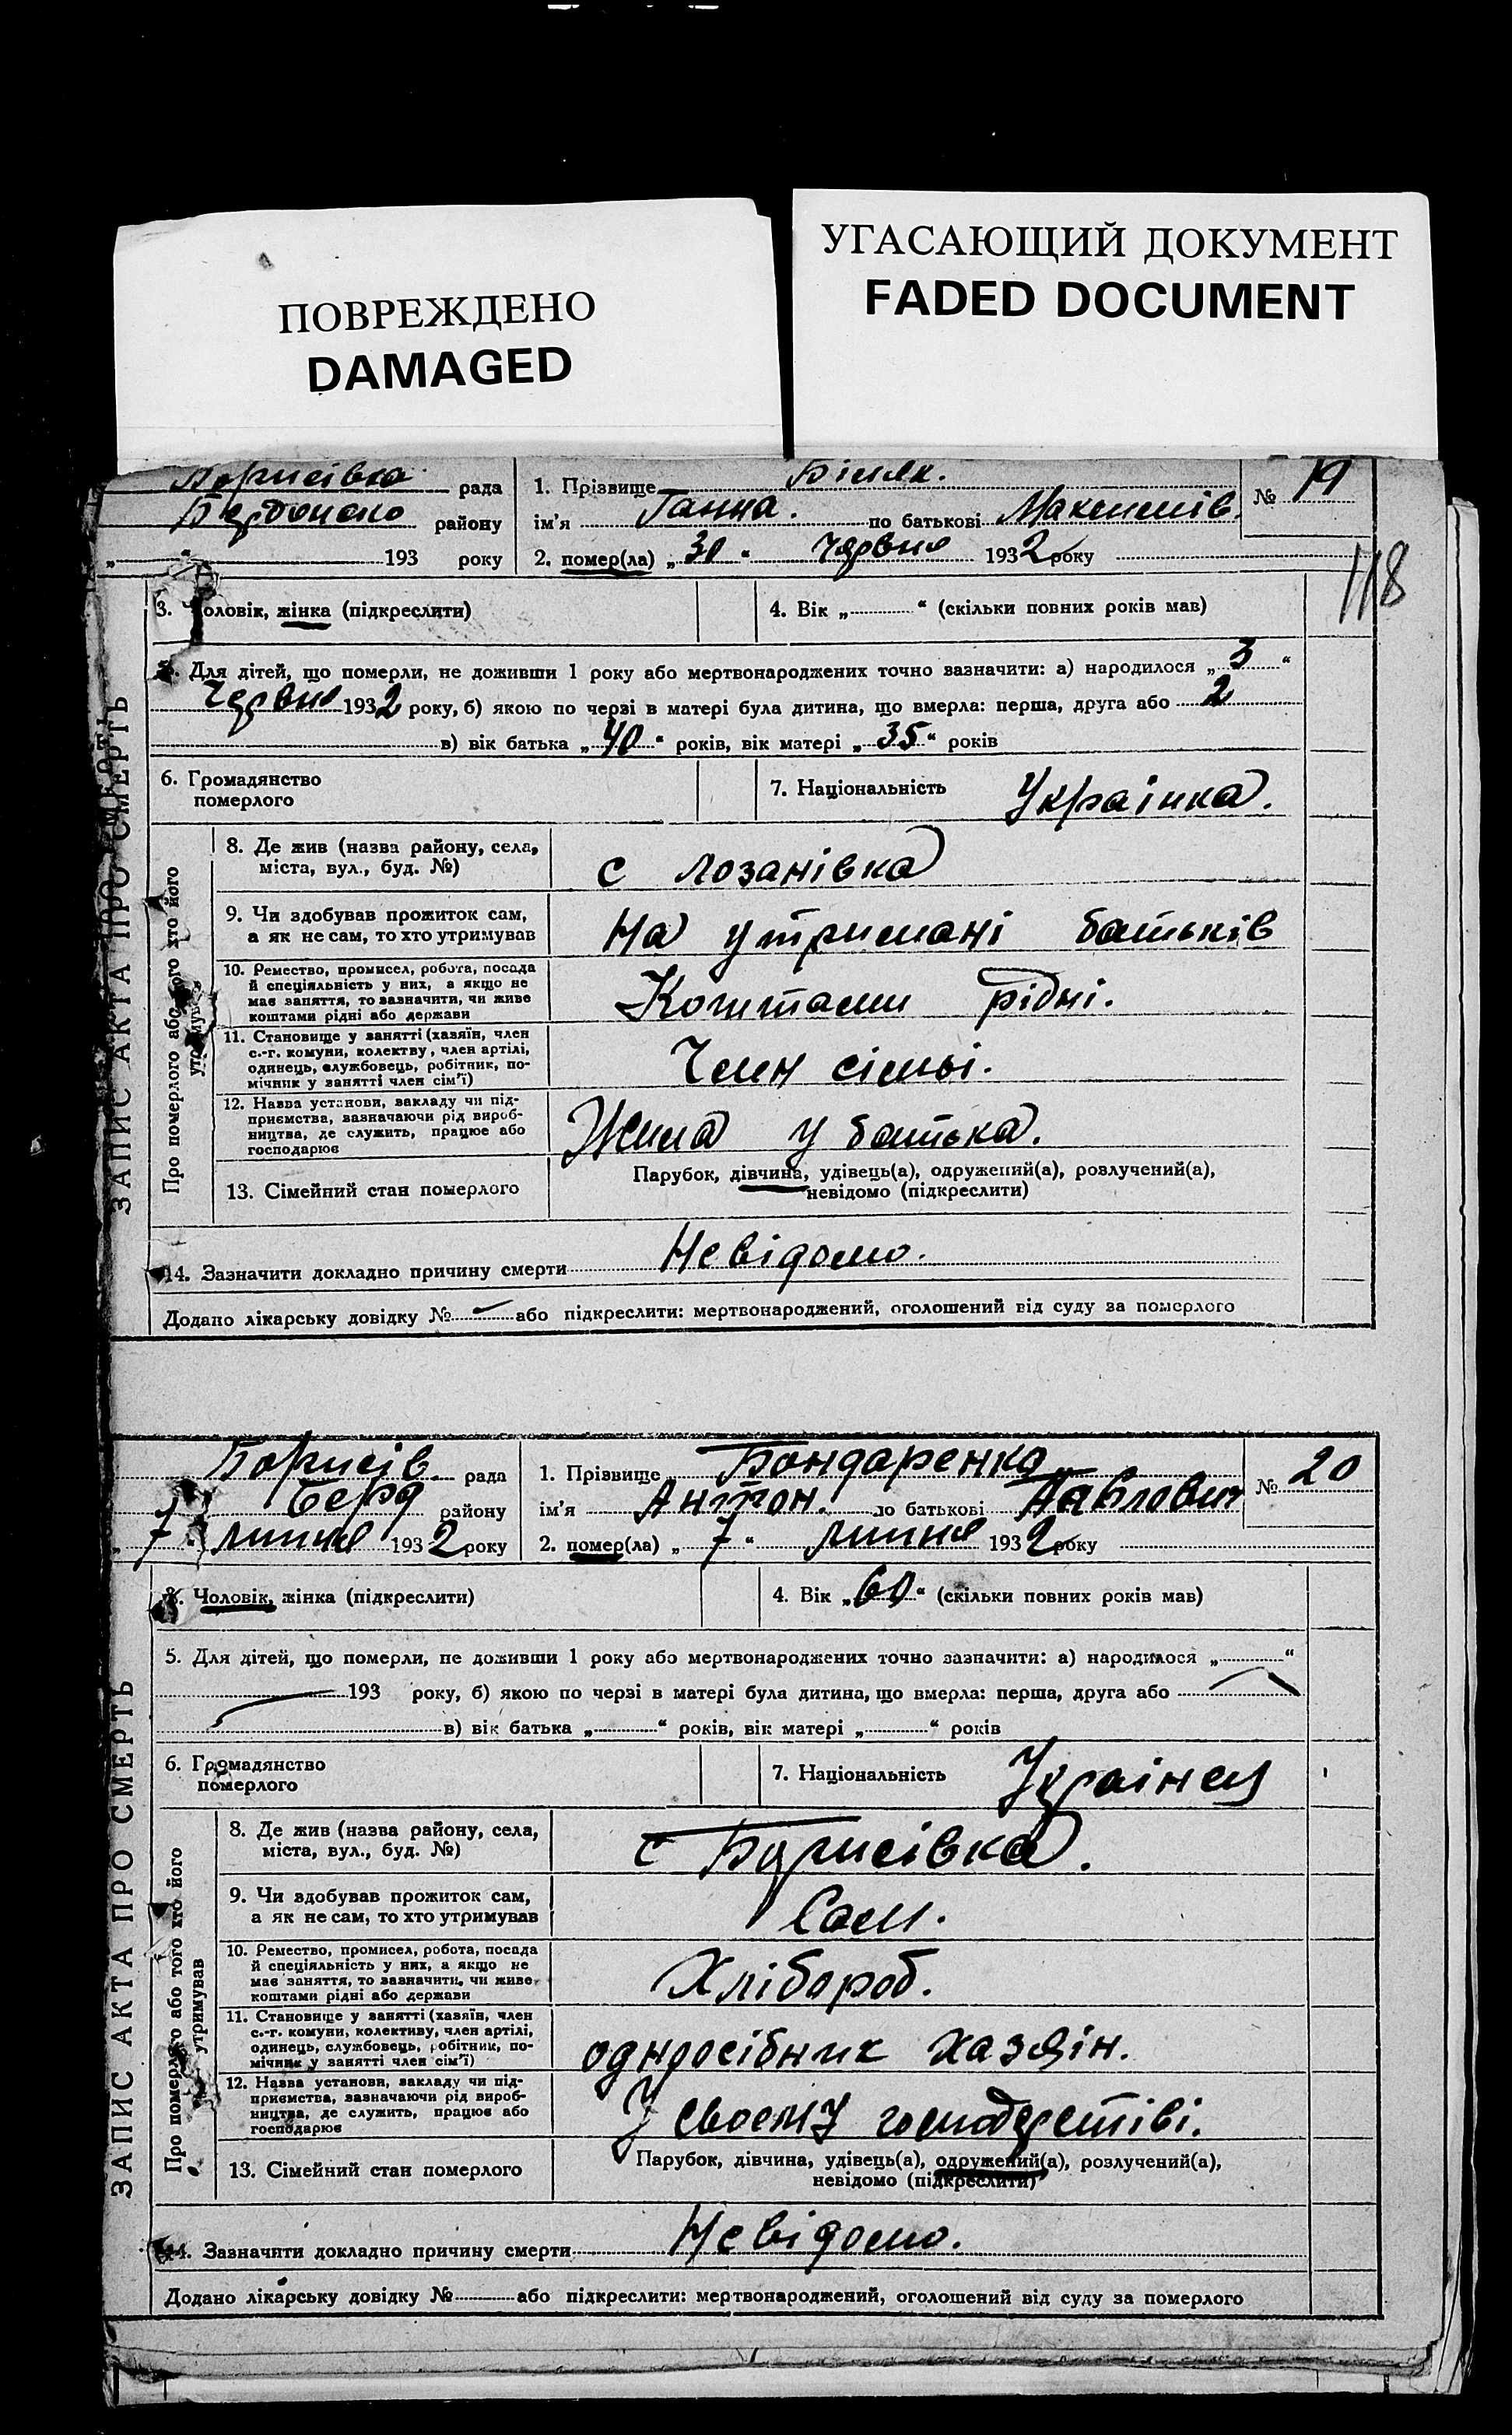 ПОВРЕЖДЕНО
DAMAGED
УГАСАЮЩИЙ ДОКУМЕНТ
FADED DOCUMENT
Борисівка рада
району
„ “ 193 року
1. Прізвище Біляк.
ім'я Ганна. по батькові Максимів.
2. помер(ла) „30“ червня 1932 року
№ 19
118
3. Чоловік, жінка (підкреслити)
4. Вік „ “ (скільки повних років мав)
5. Для дітей, що померли, не доживши 1 року або мертвонароджених точно зазначити: а) народилося „3“
червня 1932 року, б) якою по черзі в матері була дитина, що вмерла: перша, друга або 2
в) вік батька „40“ років, вік матері „35“ років
6. Громадянство
померлого
7. Національність Украінка.
ЗАПИС АКТА ПРО СМЕРТЬ
Про померлого або того хто його
утримував
8. Де жив (назва району, села,
міста, вул., буд. №)
с лозанівка
9. Чи здобував прожиток сам,
а як не сам, то хто утримував
На утримані батьків
10. Ремество, промисел, робота, посада
й спеціяльність у них, а якщо не
має заняття, то зазначити, чи живе
коштами рідні або держави
Коштами рідні.
11. Становище у занятті (хазяїн, член
с.-г. комуни, колектву, член артілі,
одинець, службовець, робітник, по-
мічник у занятті член сім'ї)
Член сімьі.
12. Назва установи, закладу чи під-
приємства, зазначаючи рід вироб-
ництва, де служить, працює або
господарює
Жила у батька.
13. Сімейний стан померлого
Парубок, дівчина, удівець(а), одружений(а), розлучений(а),
невідомо (підкреслити)
14. Зазначити докладно причину смерти Невідомо.
Додано лікарську довідку № або підкреслити: мертвонароджений, оголошений від суду за померлого
Борисів. рада
Берд району
„7“ липня 1932 року
1. Прізвище Бондаренко
ім'я Антон. по батькові Павлович
2. помер(ла) „7“ липня 1932 року
№ 20
3. Чоловік, жінка (підкреслити)
4. Вік „60“ (скільки повних років мав)
5. Для дітей, що померли, не доживши 1 року або мертвонароджених точно зазначити: а) народилося „ “
193 року, б) якою по черзі в матері була дитина, що вмерла: перша, друга або
в) вік батька „ “ років, вік матері „ “ років
6. Громадянство
померлого
7. Національність Украінец
ЗАПИС АКТА ПРО СМЕРТЬ
Про померлого або того хто його
утримував
8. Де жив (назва району, села,
міста, вул., буд. №)
с Борисівка.
9. Чи здобував прожиток сам,
а як не сам, то хто утримував
Сам.
10. Ремество, промисел, робота, посада
й спеціяльність у них, а якщо не
має заняття, то зазначити, чи живе
коштами рідні або держави
Хлібороб.
11. Становище у занятті (хазяїн, член
с.-г. комуни, колективу, член артілі,
одинець, службовець, робітник, по-
мічник у занятті член сім'ї)
одноосібник хазяін.
12. Назва установи, закладу чи під-
приємства, зазначаючи рід вироб-
ництва, де служить, працює або
господарює
У своему
13. Сімейний стан померлого
Парубок, дівчина, удівець(а), одружений(а), розлучений(а),
невідомо (підкреслити)
14. Зазначити докладно причину смерти Невідомо.
Додано лікарську довідку № або підкреслити: мертвонароджений, оголошений від суду за померлого